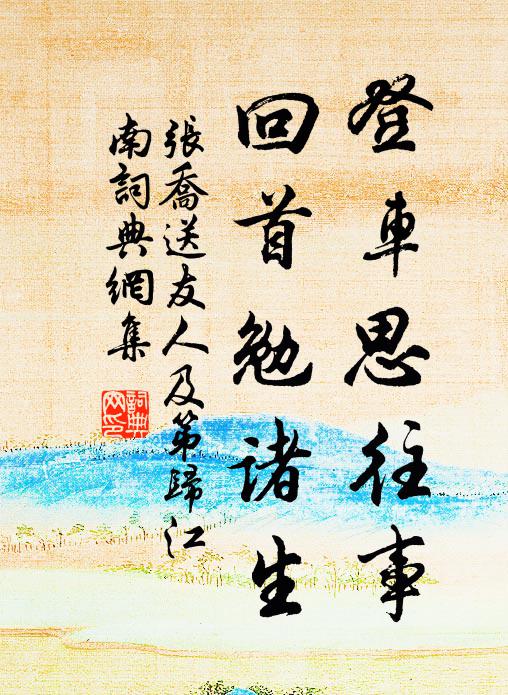 登車思往事
回首勉诸生
張喬送友人及第歸江
南詞典網集
詞典
网印